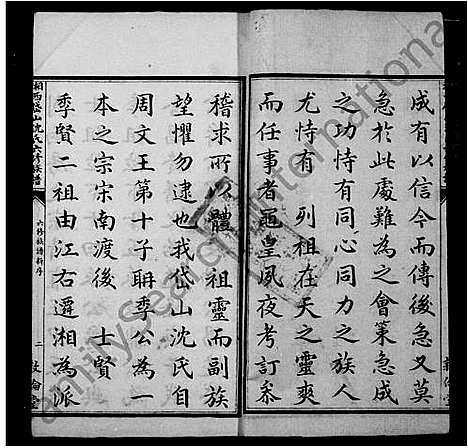 成有以信今而傳後急又莫
急於此處難為之會策急成
之功恃有同心同力之族人
尤恃有 列祖在天之靈爽
而任事者黽皇夙夜考訂叅
稽求所以體 祖靈而副族
望懼勿逮也我岱山沈氏自
周文王第十子聃季公為一
本之宗宋南渡後 士賢
季賢二祖由江右遷湘為派
湘西 山沈氏六修族譜
六修族譜新序
二
敦倫堂
FamilySearch International